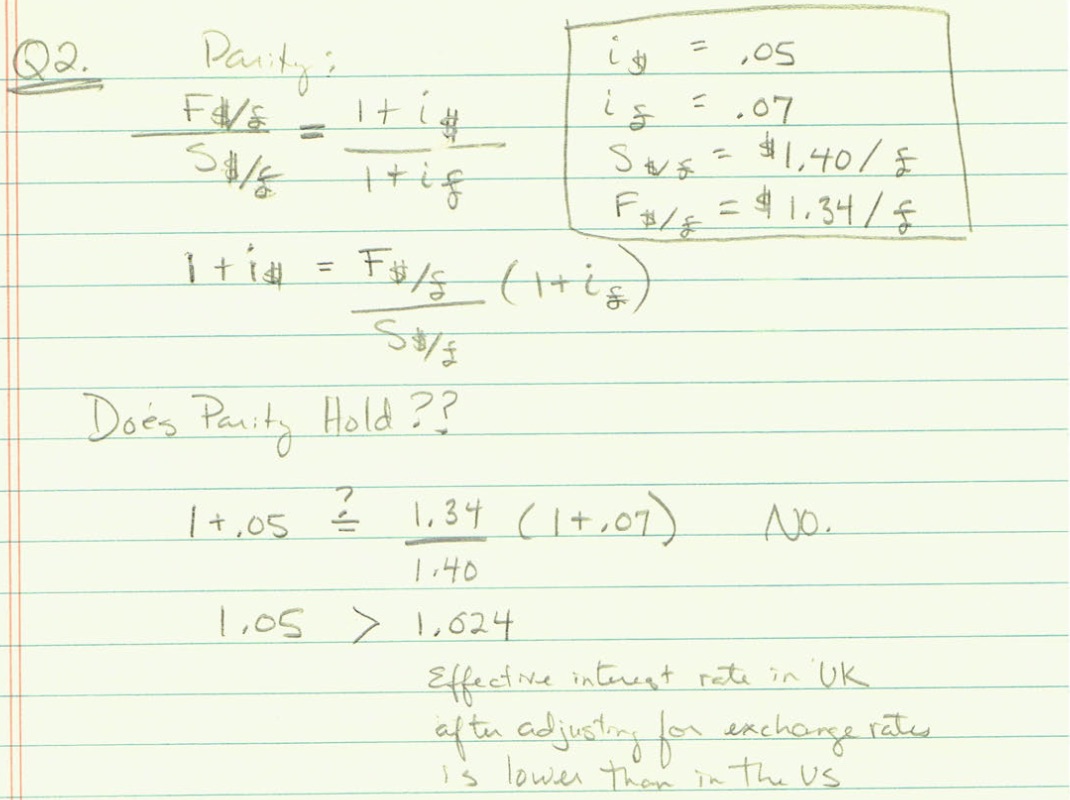 Q2. Parity:
F$/£ / S$/£ = 1 + i$ / 1 + i£
i$ = .05
i£ = .07
S$/£ = $1.40/£
F$/£ = $1.34/£
1 + i$ = F$/£ / S$/£ (1 + i£)
Does Parity Hold??
1+.05 ?= 1.34 / 1.40 (1+.07) No.
1.05 > 1.024
Effective interest rate in UK
after adjusting for exchange rates
is lower than in the US